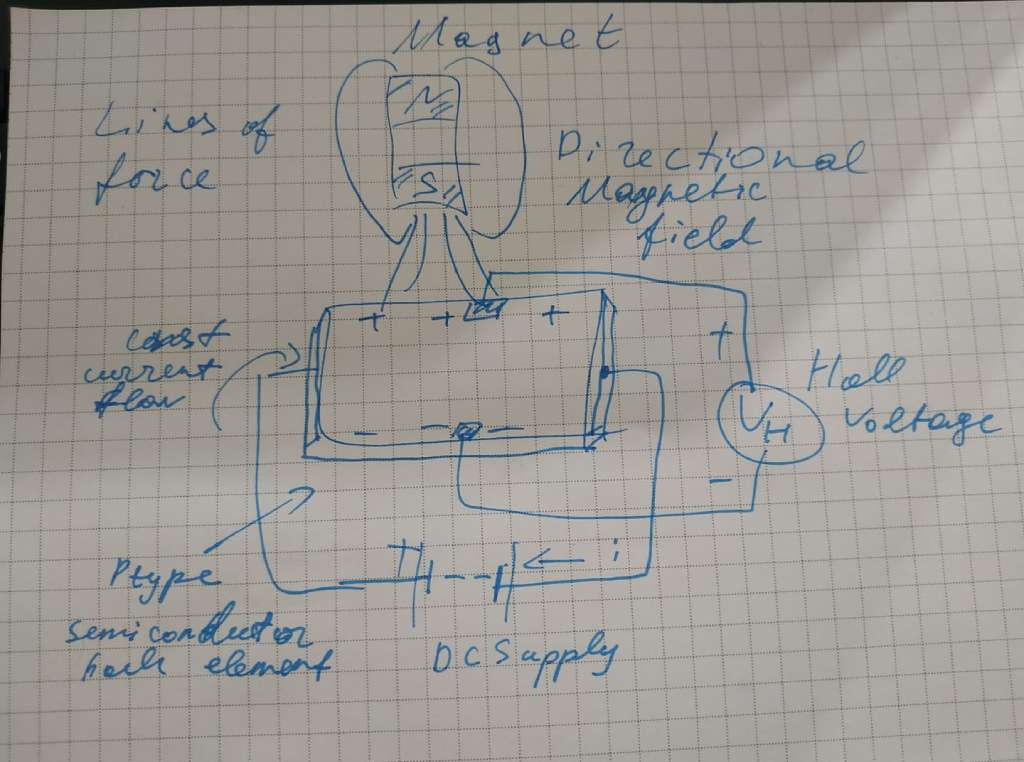 Magnet
N
Lines of
force
S
Directional
Magnetic
field
+ + +
const
current
flow
+
Hall
Voltage
VH
- - -
-
Ptype
semiconductor
hall element
+
i
DC Supply